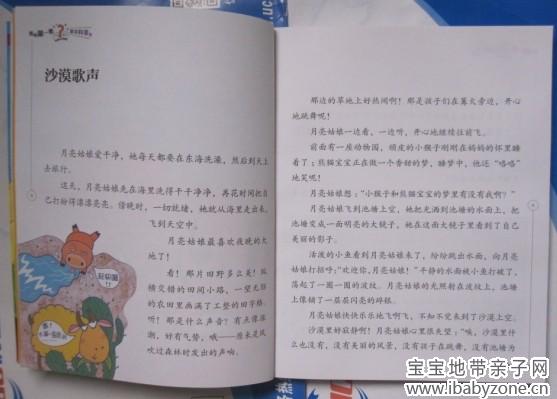 沙漠歌声
月亮姑娘爱干净，她每天都要在东海洗澡，然后到天上
去旅行。
这天，月亮姑娘先在海里洗得干干净净，再花时间把自
己打扮得漂漂亮亮。傍晚时，一切就绪，她就从海里走出来，
飞到天空中。
月亮姑娘最喜欢夜晚的大
地了！
看！那片田野多么美！纵
横交错的田间小路，一望无际
的农田里画满了工整的田字格。
听！那是什么声音？有点像浪
潮，好有气势，哦——原来是风
吹过森林时发出的声响。
那边的草地上好热闹啊！那是孩子们在篝火旁边，开心
地跳舞呢！
月亮姑娘一边看，一边听，开心地继续往前飞。
前面有一座动物园，顽皮的小猴子刚刚在妈妈的怀里睡
着了；熊猫宝宝正在做一个香甜的梦，睡梦中，他还“咯咯”
地笑呢！
月亮姑娘想：“小猴子和熊猫宝宝的梦里有没有我啊？”
月亮姑娘飞到池塘上空，她把光洒到池塘的水面上，把
池塘变成一面明亮的大镜子，她在这面大镜子里看到了自己
美丽的影子。
活泼的小鱼看到月亮姑娘来了，纷纷跳出水面，向月亮
姑娘打招呼：“欢迎你，月亮姑娘！”平静的水面被小鱼打破了，
荡起了一圈一圈的波纹，月亮姑娘的光照射在波纹上，池塘
上像铺了一层层闪亮的碎银。
月亮姑娘快快乐乐地飞啊飞，不知不觉来到了沙漠上空。
沙漠里好寂静啊！月亮姑娘心里很失望：“唉，沙漠里什
么也没有，没有美丽的风景，没有孩子在跳舞，没有池塘为
宝宝地带亲子网
www.ibabyzone.cn